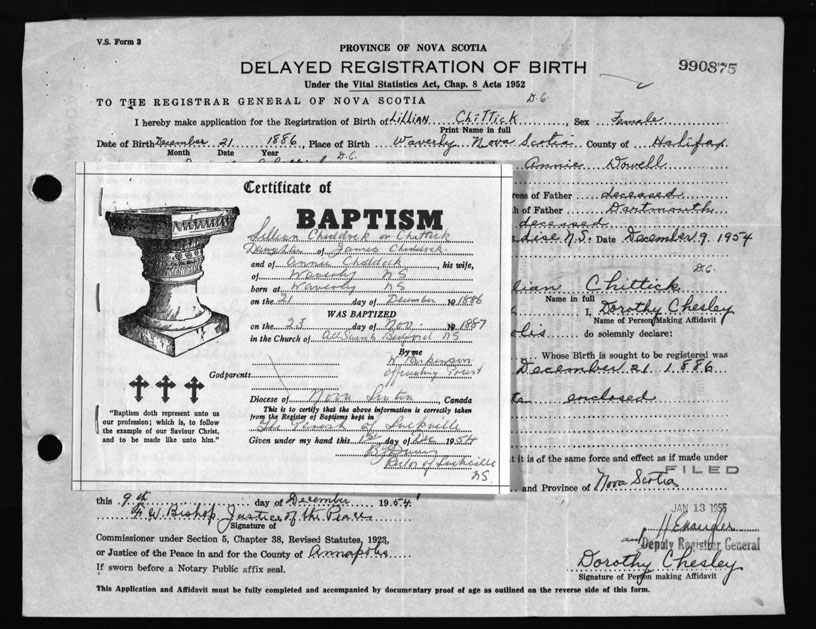 V.S. Form 3
PROVINCE OF NOVA SCOTIA
DELAYED REGISTRATION OF BIRTH
990875
Under the Vital Statistics Act, Chap. 8 Acts 1952
TO THE REGISTRAR GENERAL OF NOVA SCOTIA
D.C.
I hereby make application for the Registration of Birth of Lillian Chittick, Sex Female
Print Name in full
Date of Birth December 21 1886, Place of Birth Waverly Nova Scotia County of Halifax
Month Date Year
D.C.
Annie Dowell
ress of Father deceased
h of Father Dartmouth
deceased
adise N.S. Date December 9, 1954
D.C.
lian Chittick
Name in full
I, Dorothy Chesley
Name of Person Making Affidavit
olis do solemnly declare:
Whose Birth is sought to be registered was
December 21 1886
enclosed
t it is of the same force and effect as if made under
and Province of Nova Scotia
FILED
JAN 13 1955
Deputy Registrar General
Dorothy Chesley
Signature of Person making Affidavit
Certificate of
BAPTISM
Lillian Chiddock or Chittick
Daughter of James Chiddock
and of Annie Chddock, his wife,
of Waverly NS
born at Waverly NS
on the 21 day of December 1886
WAS BAPTIZED
on the 23 day of Nov. 1887
in the Church of All Saints Bedford NS
By me
W Parkinson
Officiating Priest
Godparents:
Diocese of Nova Scotia, Canada
This is to certify that the above information is correctly taken
from the Register of Baptisms kept in
The Parish of Sackville
Given under my hand this 1st day of Dec 1954
Rector of Sackville
NS
"Baptism doth represent unto us
our profession; which is, to follow
the example of our Saviour Christ,
and to be made like unto him."
this 9th day of December 1954
W Bishop Justice of the Peace
Signature of
Commissioner under Section 5, Chapter 38, Revised Statutes, 1923,
or Justice of the Peace in and for the County of Annapolis
If sworn before a Notary Public affix seal.
This Application and Affidavit must be fully completed and accompanied by documentary proof of age as outlined on the reverse side of this form.